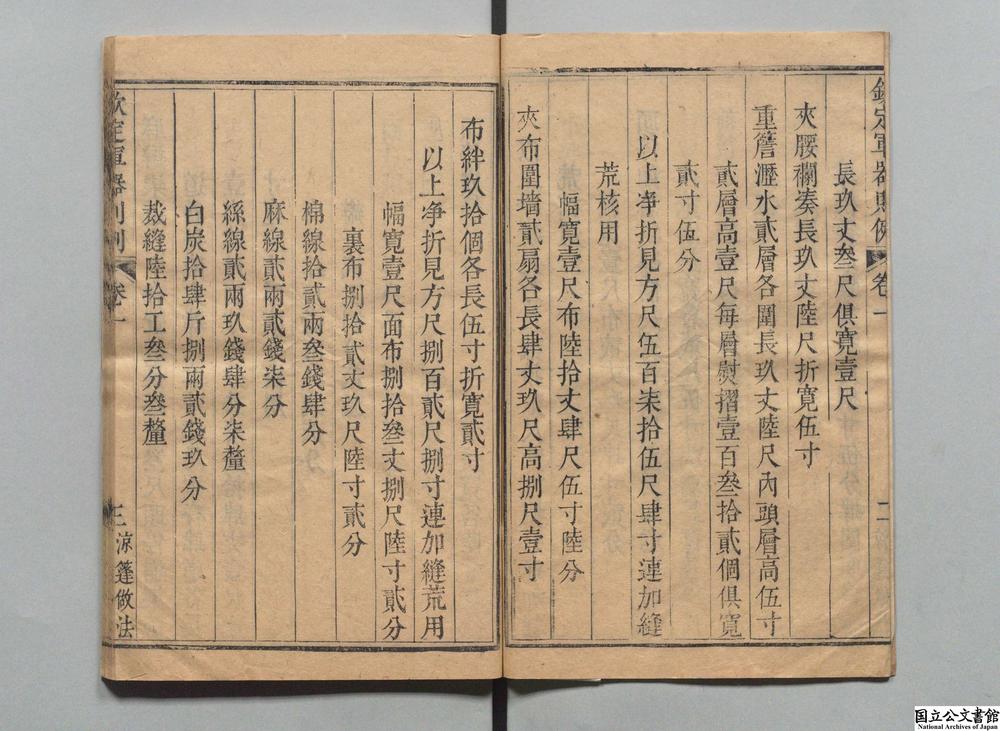 欽定軍器則例 卷一 二
長玖丈叁尺俱寬壹尺
夾腰襴湊長玖丈陸尺折寬伍寸
重簷瀝水貳層各圍長玖丈陸尺內頭層高伍寸
貳層高壹尺每層熨摺壹百叁拾貳個俱寬
貳寸伍分
以上凈折見方尺伍百柒拾伍尺肆寸連加縫
荒核用
幅寬壹尺布陸拾丈肆尺伍寸陸分
夾布圍墻貳扇各長肆丈玖尺高捌尺壹寸
布絆玖拾個各長伍寸折寬貳寸
以上凈折見方尺捌百貳尺捌寸連加縫荒用
幅寬壹尺面布捌拾叁丈捌尺陸寸貳分
裏布捌拾貳丈玖尺陸寸貳分
棉線拾貳兩叁錢肆分
麻線貳兩貳錢柒分
絲線貳兩玖錢肆分柒釐
白炭拾肆斤捌兩貳錢玖分
裁縫陸拾工叁分叁釐
欽定軍器則例 卷一 三 涼篷做法
国立公文書館
National Archives of Japan